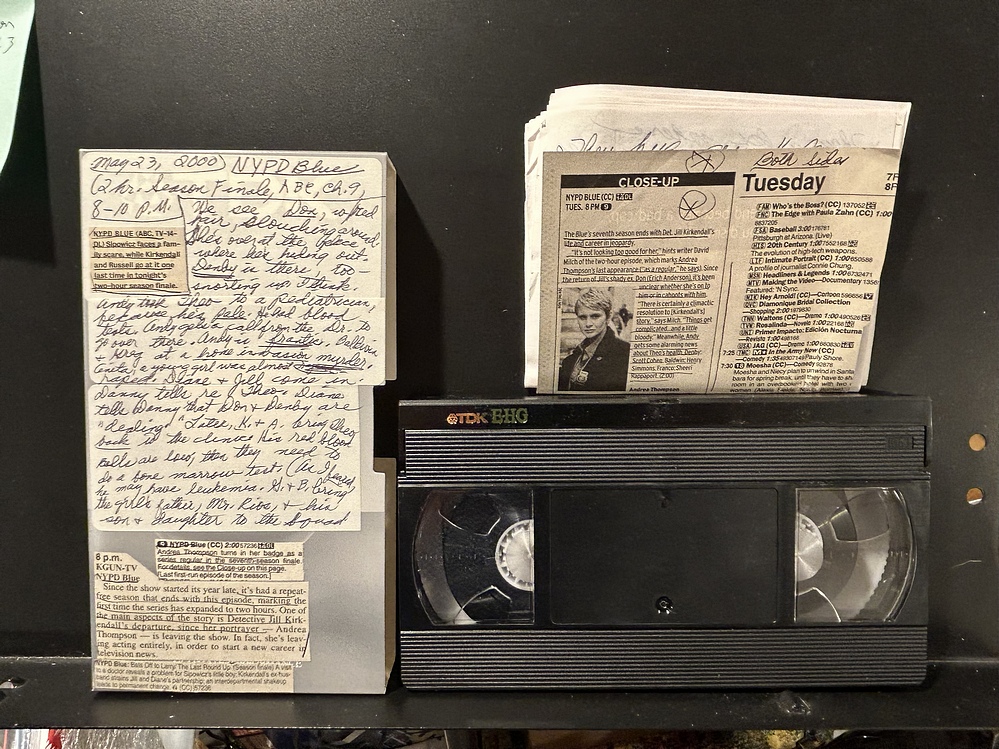 May 23, 2000) NYPD Blue
(2 hr. Season Finale, ABC, Ch. 9,
8-10 P.M.
NYPD BLUE (ABC, TV-14-
DL) Sipowicz faces a fam-
ily scare, while Kirkendall
and Russell go at it one
last time in tonight's
two-hour season finale.
We see Don,
hair, slouching around
She's over at the place
where he's hiding out.
Denby is there, too
snorting up, I think.
Andy took Theo to a pediatrician,
because he's pale. He had blood
tests. Andy gets a call from the Dr. to
go over there. Andy is frantic.
& Greg at a home invasion murder,
a young girl was almost
raped. Diane & Jill come in.
Danny tells re: Theo. Diane
tells Danny that Don & Denby are
"dealing" Later, K. & A. bring Theo
back to the clinic. His red blood
cells are low, then they need to
do a bone marrow test. (As I feared,
he may have leukemia. G. & B. bring
the girl's father, Mr. Rios, & his
son & daughter to the squad
9 NYPD Blue (CC) 2:00 57236
Andrea Thompson turns in her badge as a
series regular in the seventh-season finale.
For details, see the Close-up on this page.
(Last first-run episode of the season.)
8 p.m.
KGUN-TV
NYPD Blue
Since the show started its year late, it's had a repeat-
free season that ends with this episode, marking the
first time the series has expanded to two hours. One of
the main aspects of the story is Detective Jill Kirk-
endall's departure, since her portrayer — Andrea
Thompson — is leaving the show. In fact, she's leav-
ing acting entirely, in order to start a new career in
television news.
NYPD Blue: Bats Off to Larry; The Last Round Up (Season finale) A visit
to a doctor reveals a problem for Sipowicz's little boy; Kirkendall's ex-hus-
band strains Jill and Diane's partnership; an interdepartmental shakeup
leads to permanent change. (CC) 57236
Both sides
CLOSE-UP
NYPD BLUE (CC)
TUES. 8 PM 9
The Blue's seventh season ends with Det. Jill Kirkendall's
life and career in jeopardy.
"It's not looking too good for her," hints writer David
Milch of the two-hour episode, which marks Andrea
Thompson's last appearance ("as a regular," he says). Since
the return of Jill's shady ex, Don (Erich Anderson), it's been
unclear whether she's on to
him or in cahoots with him.
"There is certainly a climactic
resolution to (Kirkendall's)
story," says Milch. "Things get
complicated...and a little
bloody." Meanwhile, Andy
gets some alarming news
about Theo's health. Denby:
Scott Cohen. Baldwin: Henry
Simmons. Franco: Sheeri
Rappaport. (2:00)
Andrea Thompson
Tuesday
7P
8P
FAM Who's the Boss? (CC) 137052
FNC The Edge with Paula Zahn (CC) 1:00
8837205
FSA Baseball 3:00
Pittsburgh at Arizona. (Live)
HIS 20th Century 1:00 7552168
The evolution of high-tech weapons.
LIF Intimate Portrait (CC) 1:00 650588
A profile of journalist Connie Chung.
MSN Headlines & Legends 1:00
MTV Making the Video—Documentary
Featured: 'N Sync.
NIK Hey Arnold! (CC)—Cartoon
QVC Diamonique Bridal Collection
—Shopping 2:00
TNN Waltons (CC)—Drama 1:00
TVA Rosalinda—Novela 1:00
UNI Primer Impacto: Edición Nocturna
—Revista 1:00
USA JAG (CC)—Drama 1:00
7:25 TMC In the Army Now (CC)
—Comedy 1:35 Pauly Shore.
7:30 Moesha (CC)—Comedy 62876
Moesha and Niecy plan to unwind in Santa
barbara for spring break, until they have to sh
room in an overbooked hotel with two
TDK EHG